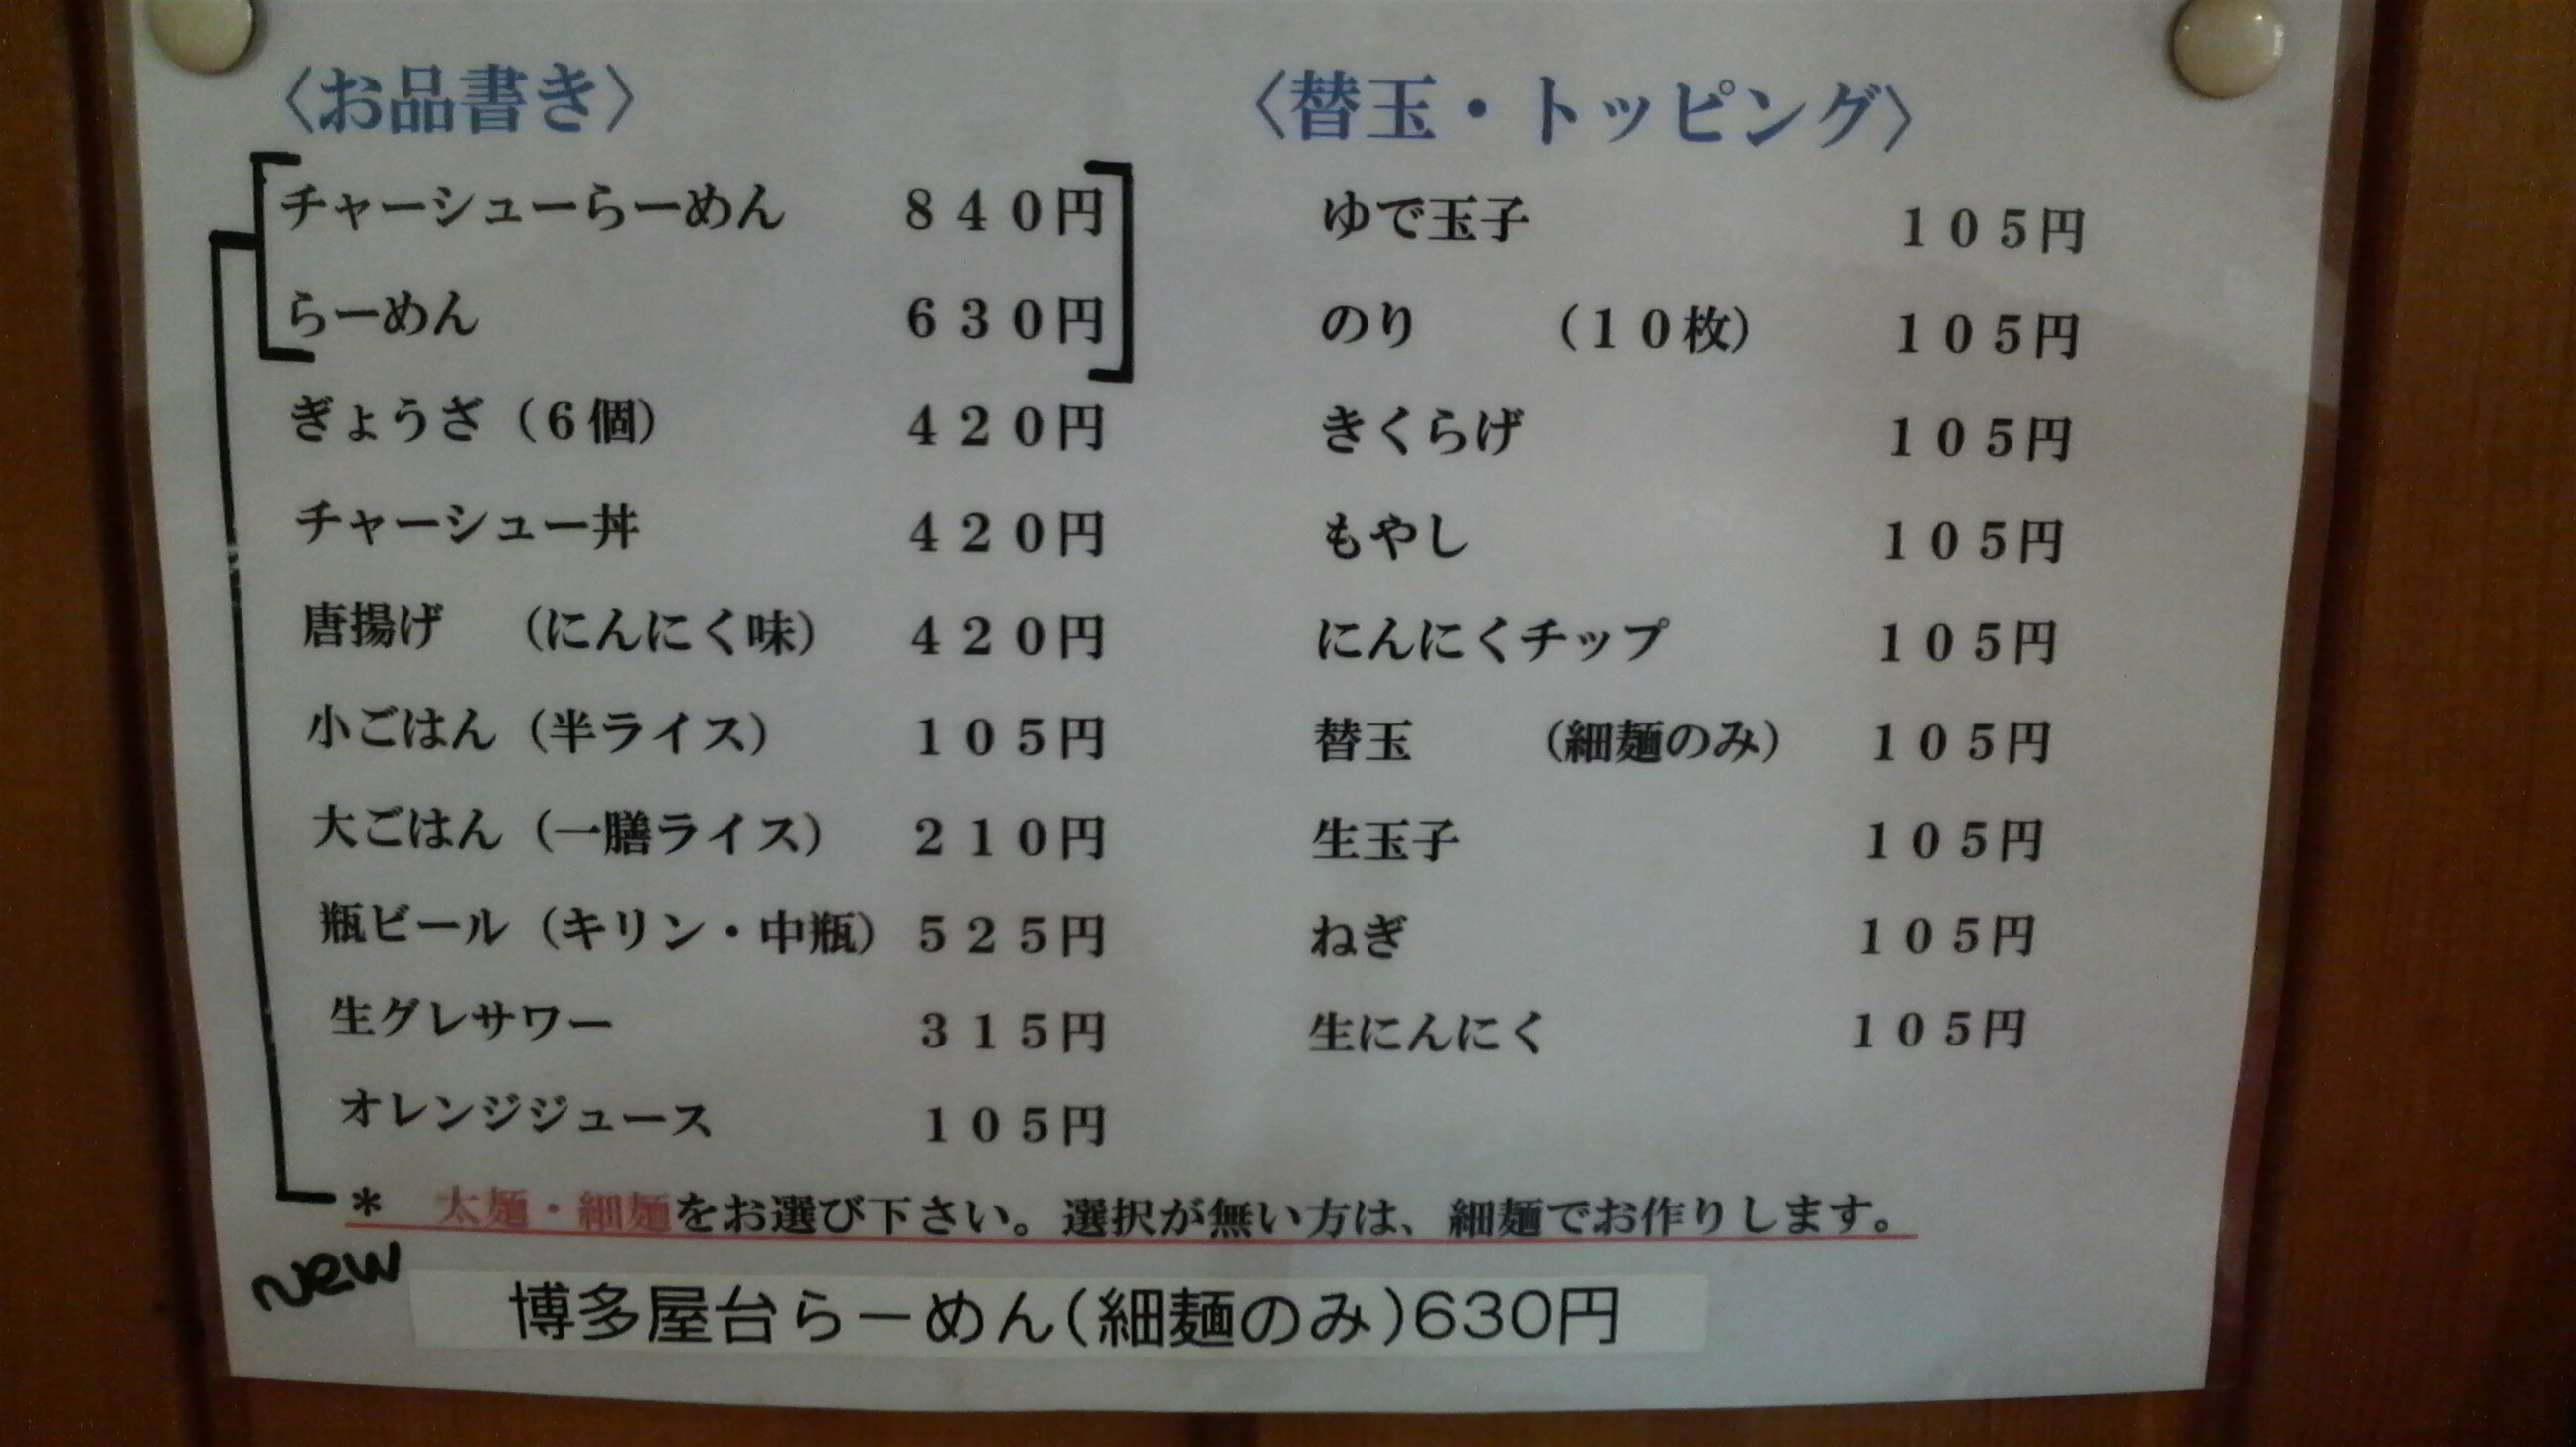 〈お品書き〉
チャーシューらーめん 840円
らーめん 630円
ぎょうざ（6個） 420円
チャーシュー丼 420円
唐揚げ （にんにく味） 420円
小ごはん（半ライス） 105円
大ごはん（一膳ライス） 210円
瓶ビール（キリン・中瓶） 525円
生グレサワー 315円
オレンジジュース 105円
〈替玉・トッピング〉
ゆで玉子 105円
のり （10枚） 105円
きくらげ 105円
もやし 105円
にんにくチップ 105円
替玉 （細麺のみ） 105円
生玉子 105円
ねぎ 105円
生にんにく 105円
＊ 太麺・細麺をお選び下さい。選択が無い方は、細麺でお作りします。
New
博多屋台らーめん(細麺のみ)630円